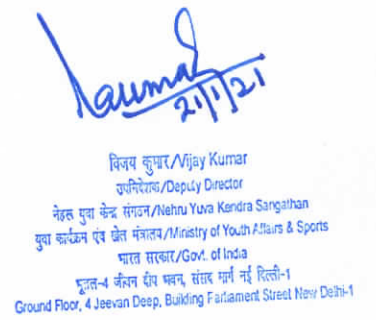 Kumar
21/1/21
विजय कुमार/Vijay Kumar
उपनिदेशक/Deputy Director
नेहरू युवा केन्द्र संगठन/Nehru Yuva Kendra Sangathan
युवा कार्यक्रम एंव खेल मंत्रालय/Ministry of Youth Affairs & Sports
भारत सरकार/Govt. of India
भूतल-4 जीवन दीप भवन, संसद मार्ग नई दिल्ली-1
Ground Floor, 4 Jeevan Deep, Building Parliament Street New Delhi-1